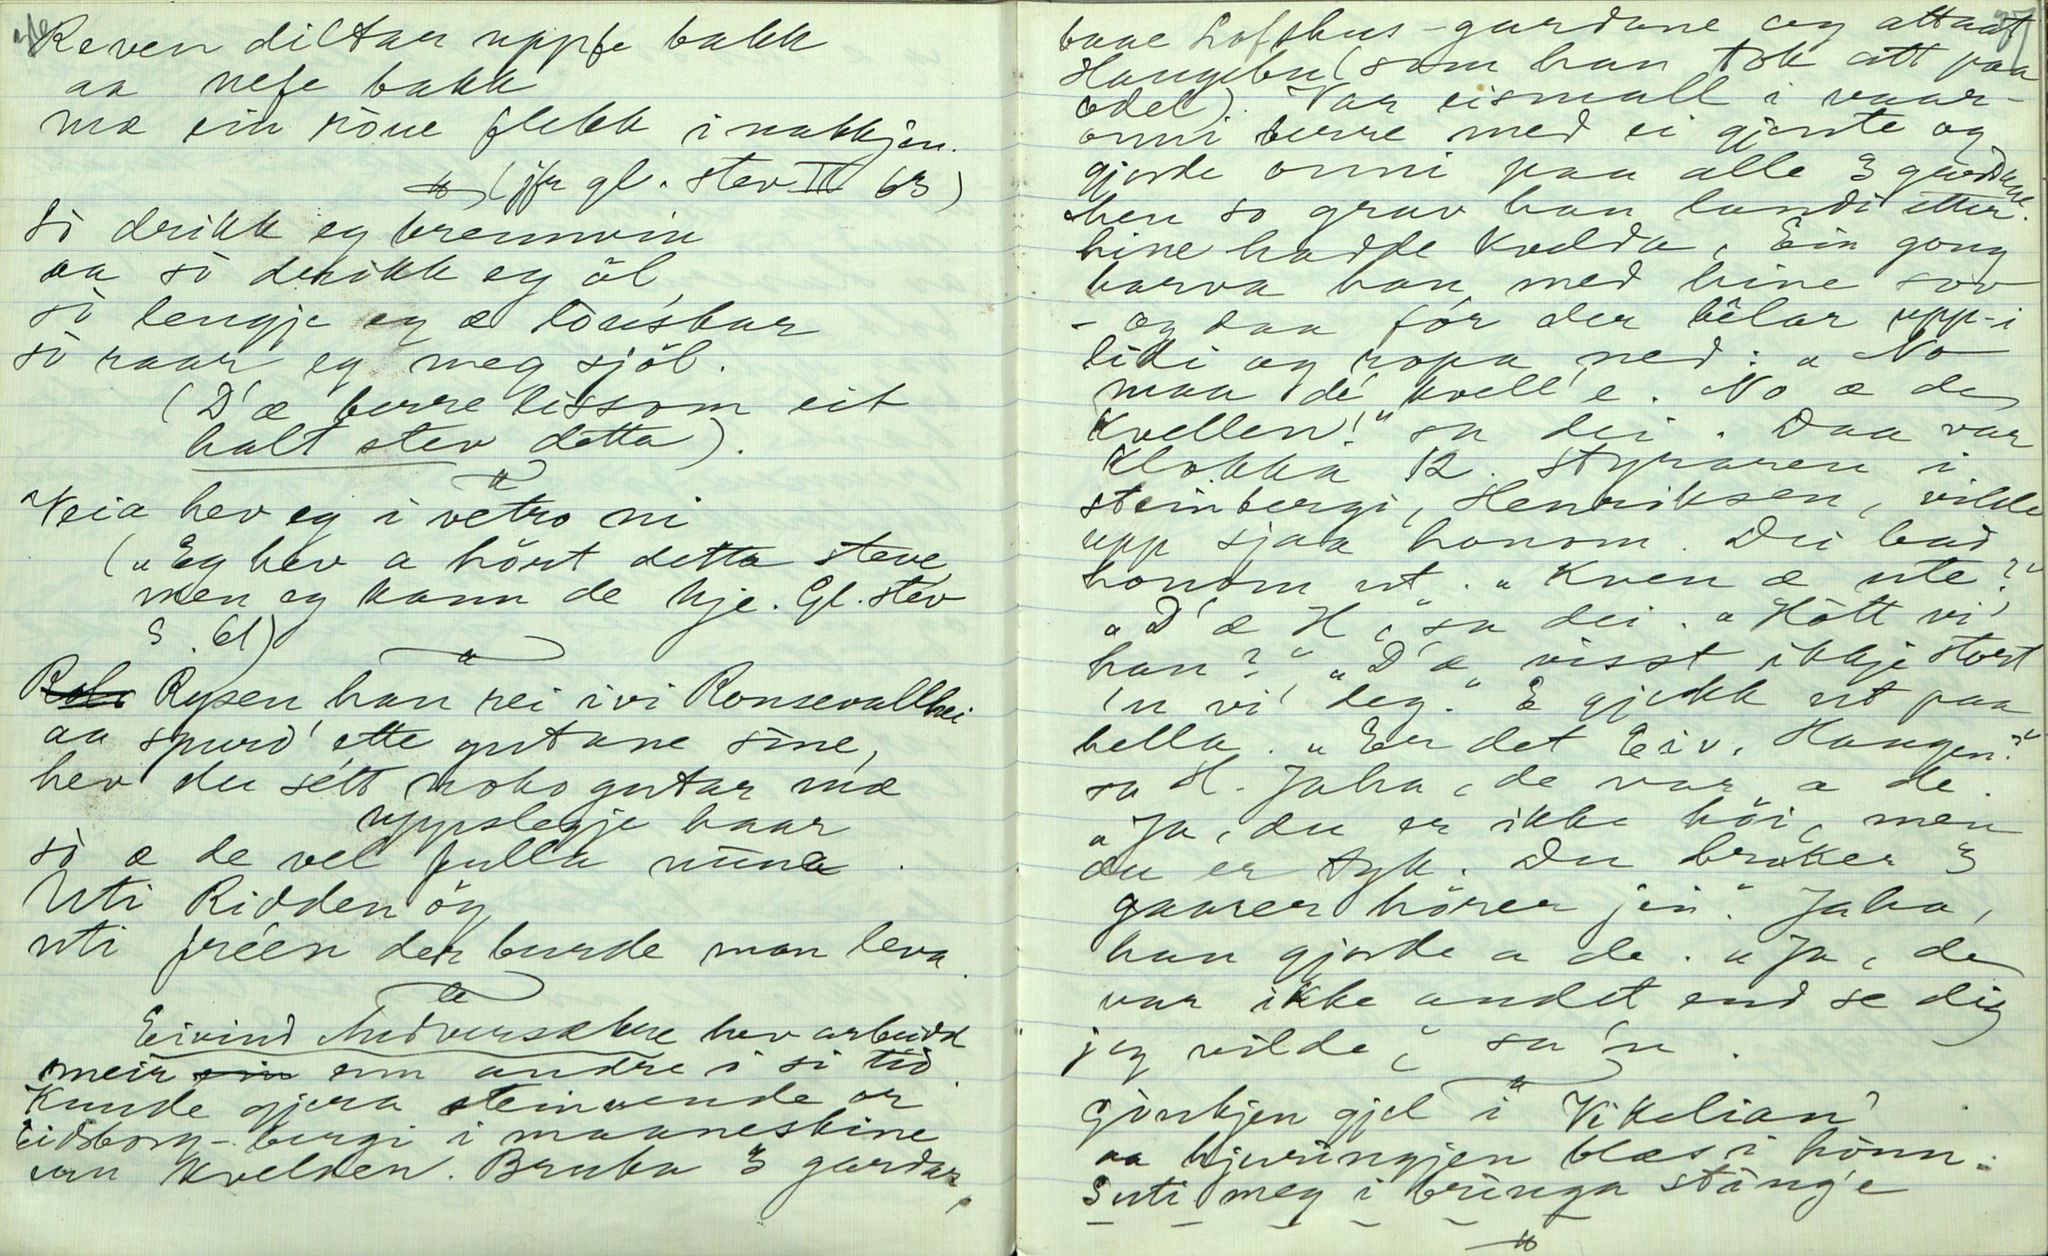 36
Reven diltar uppfe bakk
aa nefe bakk
mæ ein röue flekk i nakkjen.
(jfr gl. stev II 63)
Sò drikk eg brennvin
aa sò drikk eg öl,
sò lengje eg æ löusbar
sò raar eg meg sjöl.
(D'æ berre lissom eit
halt stev detta).
Neia hev eg i vetro ni
("Eg hev a hört detta steve,
men eg kann de kje. Gl. stev
S. 61)
Rysen han rei ivi Ronsevallhei
aa spurd' ette gutane sine,
hev du sétt noko gutar mæ
uppslegje haar
sò æ de vel fulla mine.
Uti Ridden òg
uti fréen der burde mon leva.
Eivind Midversækre hev arbeidd
meir enn andre i si tid.
Kunde gjera steinvende or
Eidsborg-bergi i maaneskine
um kvelden. Bruka 3 gardar,
37
baae Lofshus-gardane og attaat
Haugebu (som han tok att paa
odel). Var eismall i vaar-
onni berre med ei gjente og
gjorde onni paa alle 3 gardane.
hen so grav han landi etter
hine hadde kvelda. Ein gong
harva han med hine sov
- og daa fór der bêlar upp-i
lidi og ropa ned: "No
maa de kvell'e. No æ de
kvellen!" sa dei. Daa var
klokka 12. Styraren i
steinbergi, Henriksen, vilde
upp sjaa honom. Dei bad
honom ut. "Kven æ ute?"
"D'æ H," sa dei. "Hôtt vi'
han?" "D'æ visst ikkje stort
'n vi' deg." E gjekk ut paa
hella. "Er det Eiv. Haugen?"
sa H. Jaha, de var a de.
"Ja, du er ikke höi, men
du er tyk. Du brüker 3
gaarer hörer jei". Jaha,
han gjorde a de. "Ja, de
var ikke andet end se dig
jeg vilde," sa 'n.
Gôukjen gjel i Vikelian'
aa hjuringjen blæs i hònn.
Suti meg i bringa stång'e